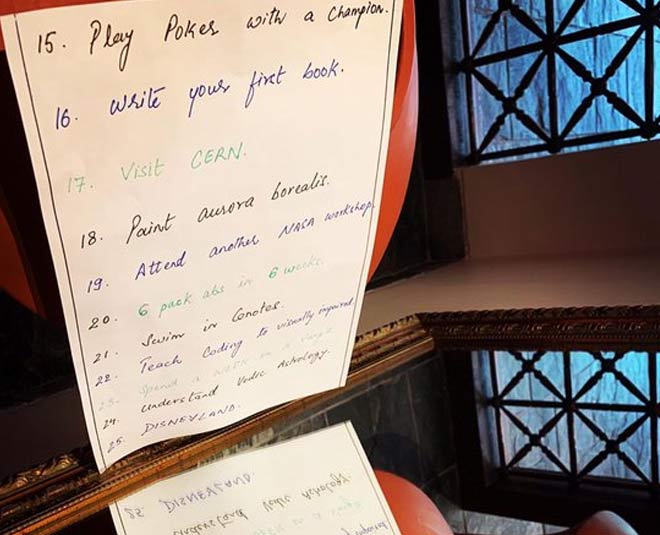 15. Play Poker with a Champion.
16. Write your first book.
17. Visit CERN.
18. Paint aurora borealis.
19. Attend another NASA workshop.
20. 6 pack abs in 6 weeks.
21. Swim in Cenotes.
22. Teach Coding to visually impaired.
23. Spend a week in a
24. Understand Vedic Astrology.
25. DISNEYLAND.